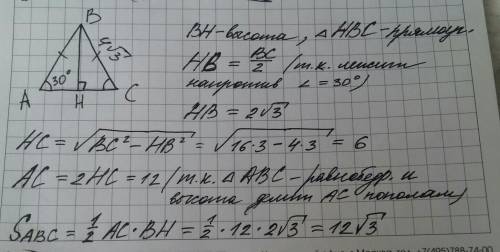 B
4√3
30°
A
H
C
BH-высота, △HBC-прямоуг.
HB = BC/2 (т.к. лежит
напротив ∠ = 30°)
HB = 2√3
HC = √BC² - HB² = √16·3 - 4·3 = 6
AC = 2HC = 12 (т.к. △ABC - равнобедр. и
высота делит AC пополам)
S ABC = 1/2 AC · BH = 1/2 · 12 · 2√3 = 12√3